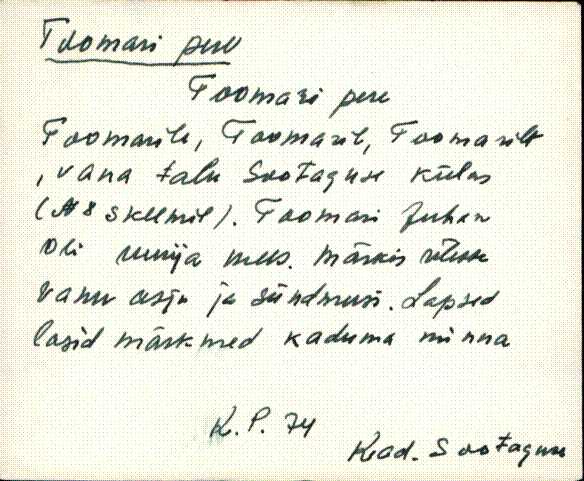 Toomari pere
Toomari pere
Toomarile, Toomaril, Toomarilt
, vana talu Sootaguse külas
(№ 8 skeemil). Toomari Juhan
oli uurija mees. Märkis ülesse
vanu asju ja sündmusi. Lapsed
lasid märkmed kaduma minna
K. P. 74
Kad. Sootaguse